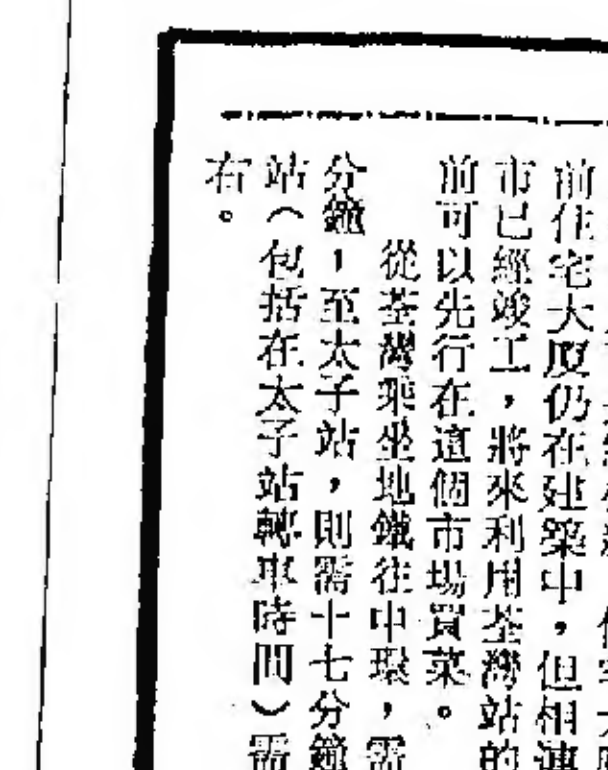 前住宅大廈仍在建築中，但相連
市已經竣工，將來利用荃灣站的
前可以先行在這個市場買菜。
從荃灣乘坐地鐵往中環，需
分鐘，至太子站，則需十七分鐘
站（包括在太子站轉車時間）需
右。